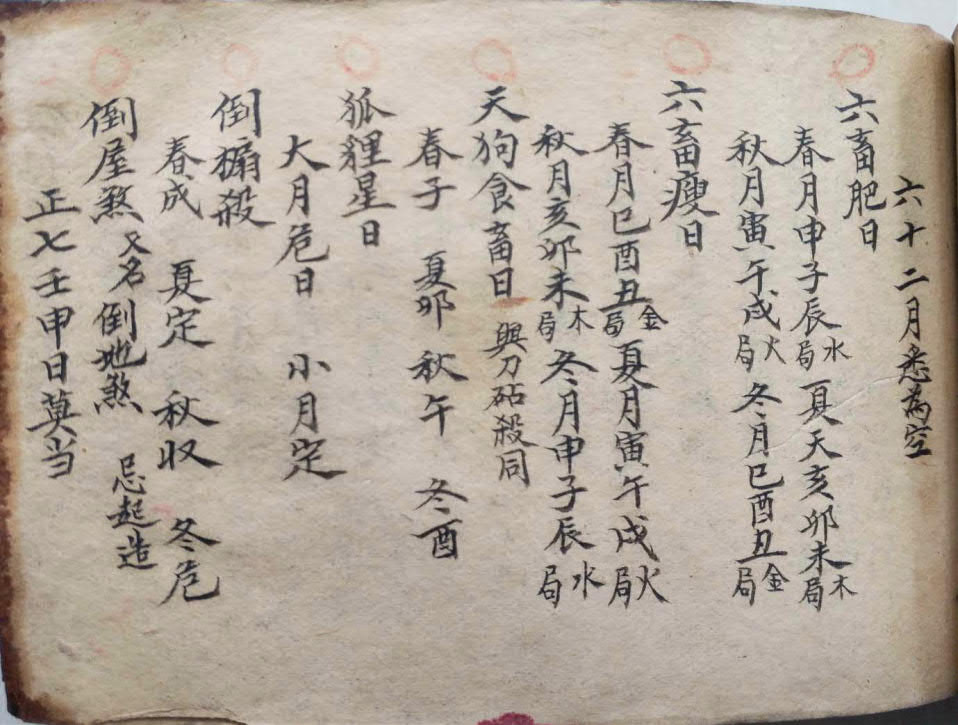 六十二月悉為空
六畜肥日
春月申子辰水局夏天亥卯未木局
秋月寅午戌火局冬月巳酉丑金局
六畜瘦日
春月巳酉丑金局夏月寅午戌火局
秋月亥卯未木局冬月申子辰水局
天狗食畜日 與刀砧殺同
春子 夏卯 秋午 冬酉
狐狸星日
大月危日 小月定
倒㮟殺
春成 夏定 秋収 冬危
倒屋煞 又名倒地煞 忌起造
正七壬申日莫当